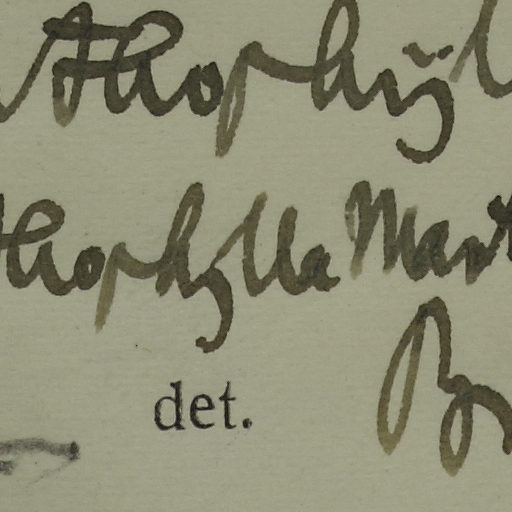 thophyl
thophylla Mart
B
det.